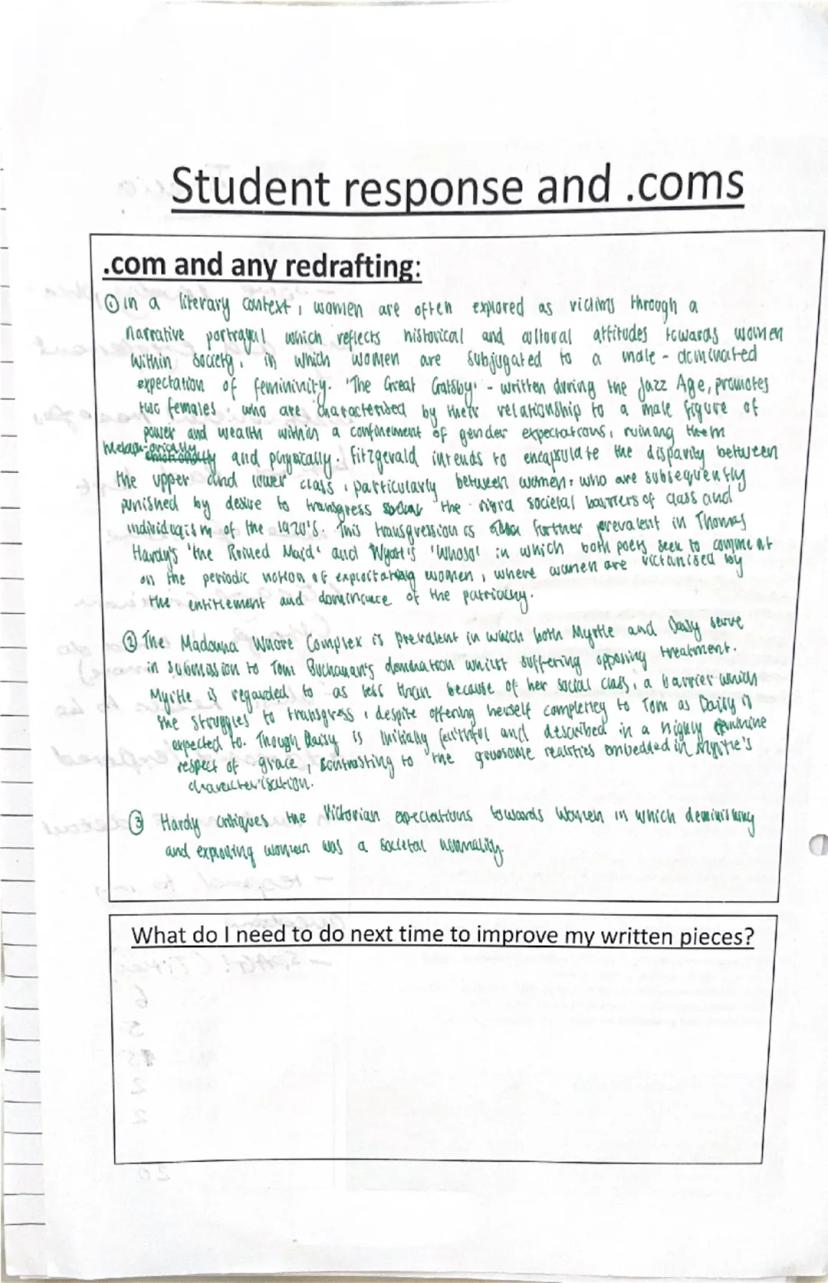 Student response and .coms
.com and any redrafting:
① in a literary context, women are often explored as victims through a
narrative portrayal which reflects historical and cultural attitudes towards women
within society, in which women are subjugated to a male-dominated
expectation of femininity. 'The Great Gatsby' - written during the Jazz Age, promotes
two females, who are characterised by their relationship to a male figure of
power and wealth within a confinement of gender expectations, ruining them
Metaphorically and physically. Fitzgerald intends to encapsulate the disparity between
the upper and lower class, particularly between women, who are subsequently
punished by desire to transgress the rigid societal barriers of class and
individualism of the 1920's. This transgression is further prevalent in Thomas
Hardy's 'the Ruined Maid' and Wyatt's 'Whoso' in which both poets seek to comment
on the periodic notion of exploitating women, where women are victimised by
the entitlement and dominance of the patriarchy.
② The Madonna Whore Complex is prevalent in which both Myrtle and Daisy serve
in submission to Tom Buchanan's domination whilst suffering opposing treatment.
Myrtle is regarded to as less than because of her social class, a barrier which
she struggles to transgress, despite offering herself completely to Tom as Daisy is
expected to. Though Daisy is initially faithful and described in a highly feminine
respect of grace, contrasting to the gruesome realities embedded in Myrtle's
characterisation.
③ Hardy critiques the Victorian expectations towards women in which deminishing
and exploiting women was a societal normality.
What do I need to do next time to improve my written pieces?